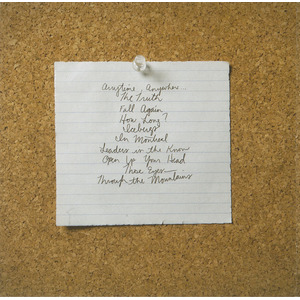 Anytime, Anywhere...
The Truth
Fall Again
How Long?
Icebergs
In Montreal
Leaders in the Know
Open Up Your Head
These Eyes
Through the Mountains